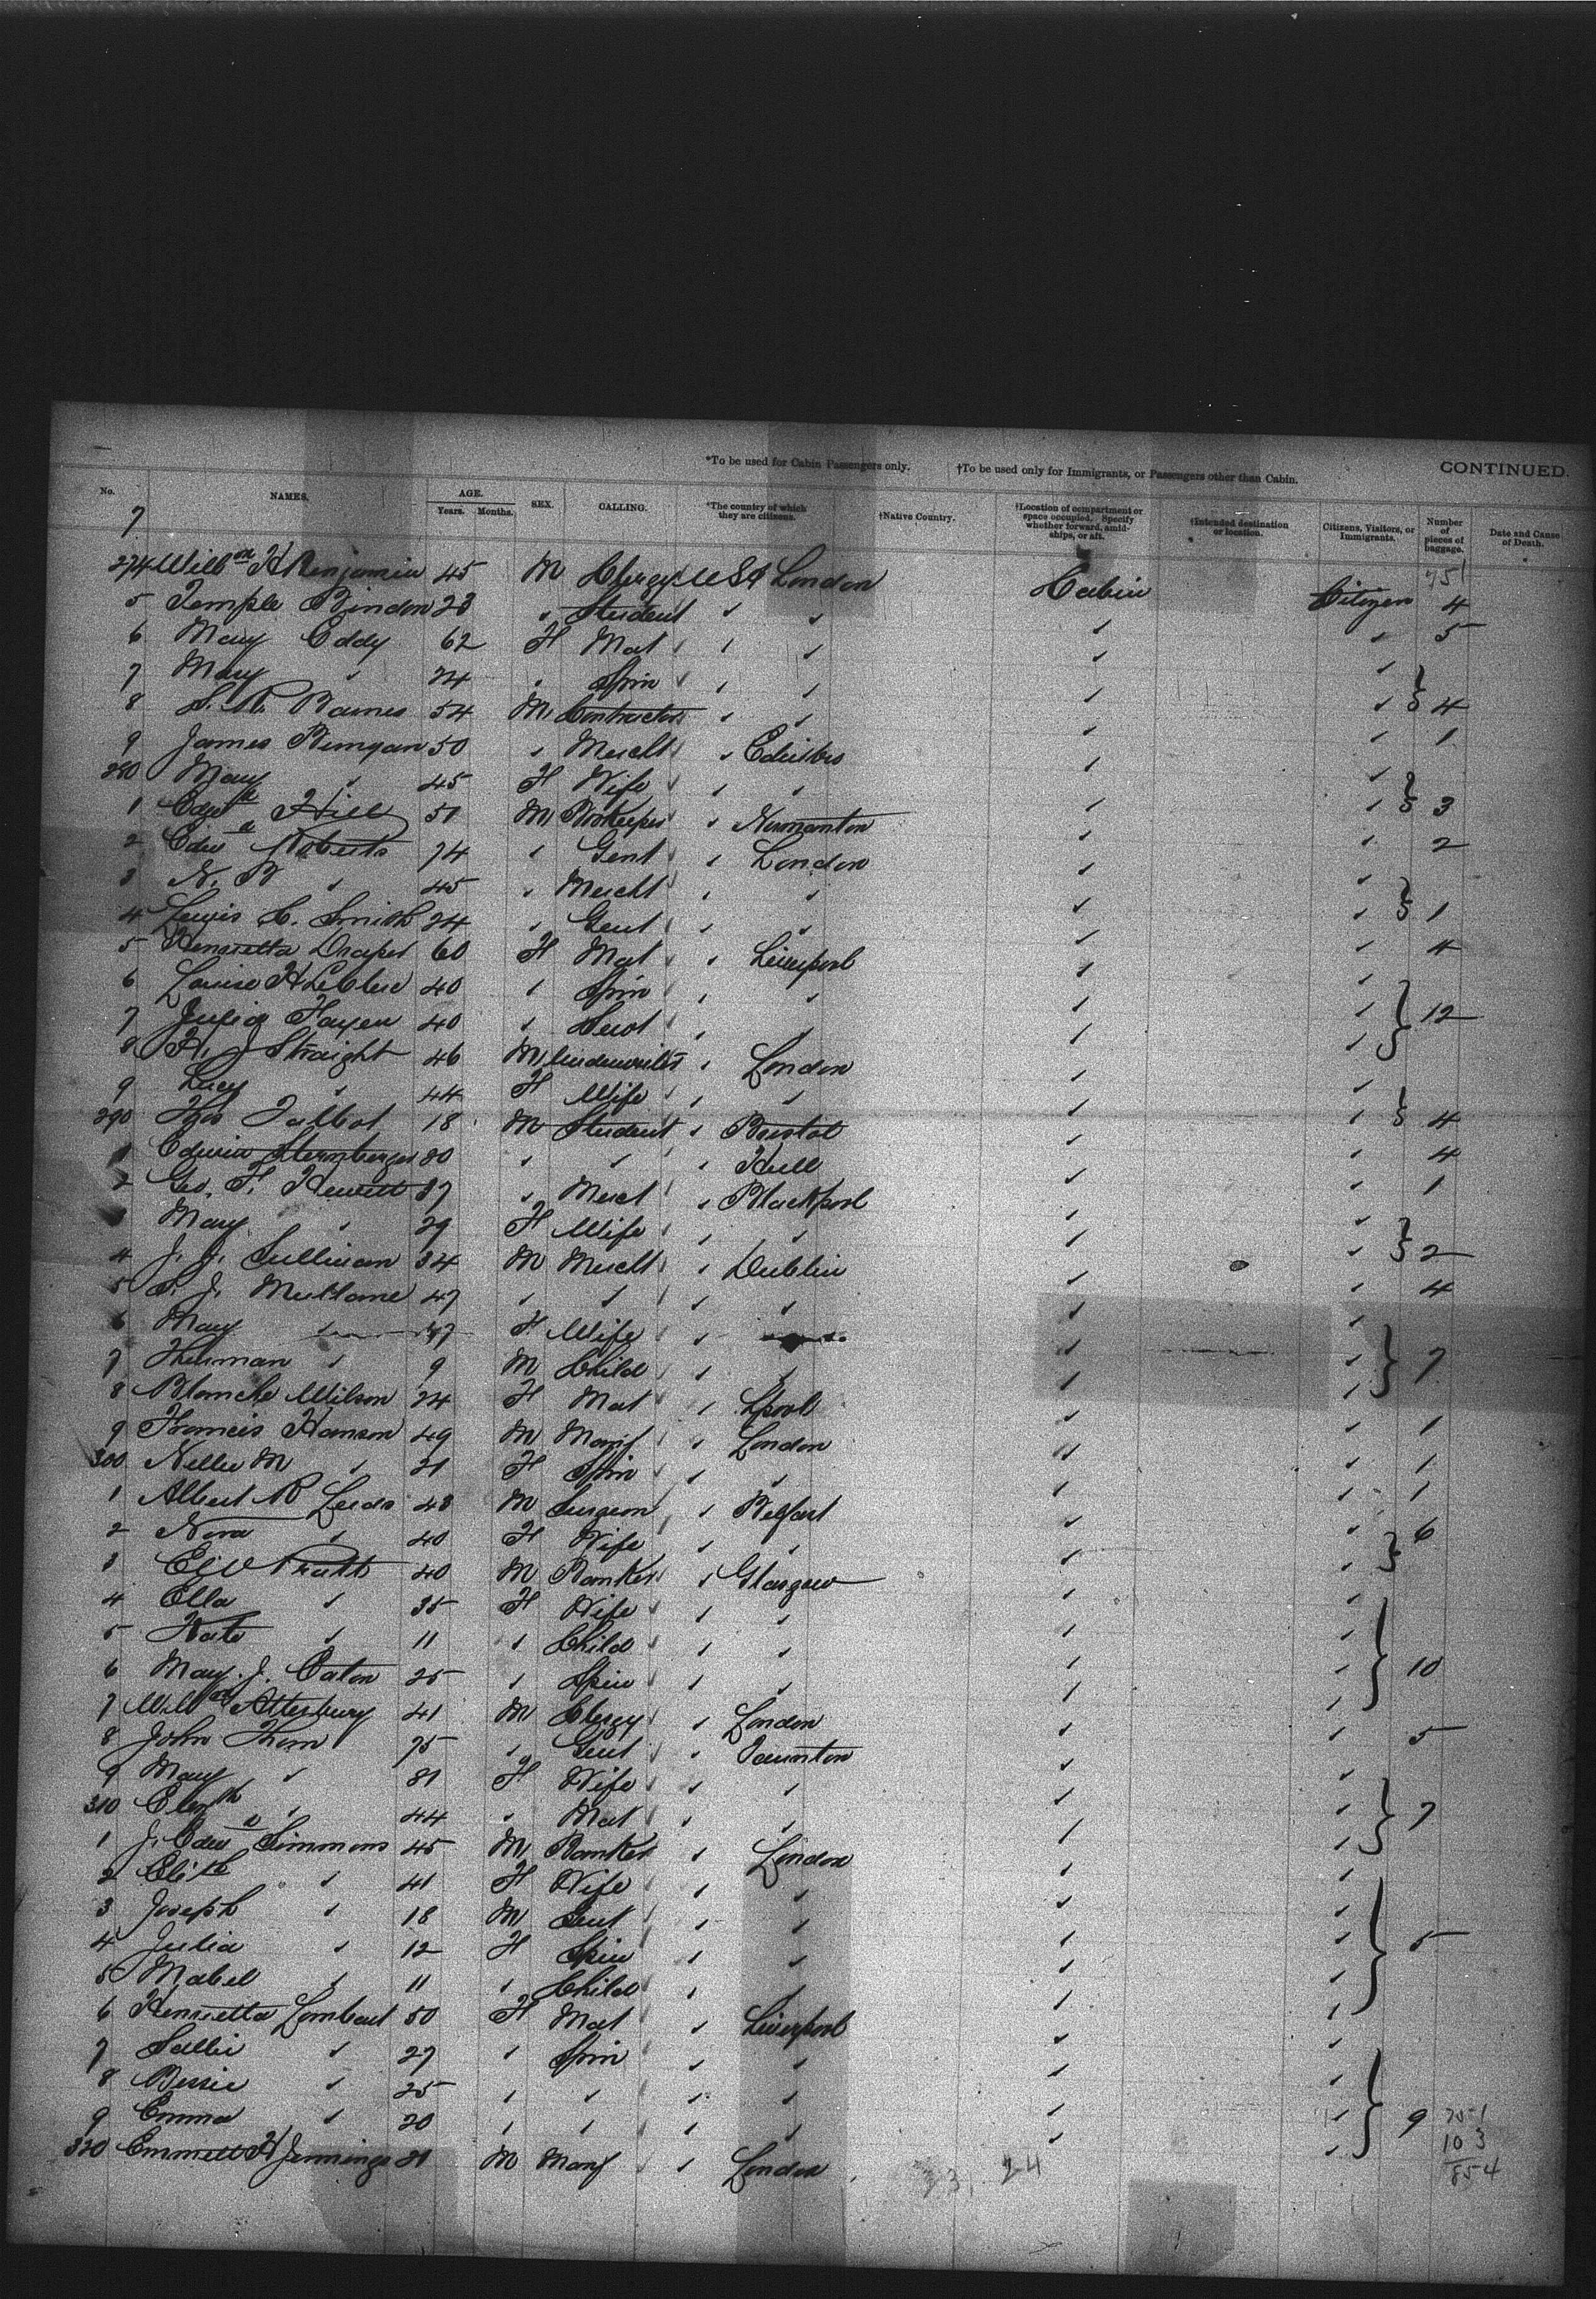 *To be used for Cabin Passengers only. †To be used only for Immigrants, or Passengers other than Cabin. CONTINUED.
No. NAMES. AGE. Years. Months. SEX. CALLING. *The country of which they are citizens. †Native Country. †Location of compartment or space occupied. Specify whether forward, amidships, or aft. †Intended destination or location. Citizens, Visitors, or Immigrants. Number of pieces of baggage. Date and Cause of Death.
7
751
274 Willm H Benjamin 45 M Clergy USA London Cabin Citizen 4
5 Temple Bindon 23 " Student " " " " 5
6 Mary Eddy 62 F Mat " " " "
7 Mary " 24 " Spin " " " " } 4
8 S. R. Barnes 54 M Contractor " " " " 1
9 James 50 " Mercht " " "
280 Mary " 45 F Wife " " " " } 3
1 Edwd Hill 51 M Bookeeper " Normanton " " 2
2 Edwd Roberts 74 " Gent " London " "
3 N. B " 45 " Mercht " " " " } 1
4 Lewis C. Smith 24 " Gent " " " " 4
5 Henrietta Draper 60 F Mat " Liverpool " "
6 Louise H 40 " Spin " " " " } 12
7 Julia 40 " Servt " " " "
8 R. J Straight 46 M Underwriter " London " "
9 Lucy " 44 F Wife " " " " } 4
290 Thos Talbot 18 M Student " Bristol " " 4
1 Edwin Sternberger 20 " " " Hull " " 1
2 Geo. F. Hewitt 37 " Merct " Blackpool " "
3 Mary " 29 F Wife " " " " } 2
4 J. J. Sullivan 34 M Mercht " Dublin " " 4
5 S. J. 47 " " " " " "
6 Mary " 47 F Wife " " " } 7
7 " 9 M Child " " " "
8 Blanche Wilson 24 F Mat " Lpool " " 1
9 Francis Hanson 49 M Manf " London " " 1
300 Nellie M " 21 F Spin " " " " 1
1 Albert R Leeds 43 M Surgeon " Belfast " " 6
2 Nora " 40 F Wife " " " " }
3 Pratt 40 M Banker " Glasgow " "
4 Ella " 35 F Wife " " " "
5 Kate " 11 " Child " " " " } 10
6 May. J. Eaton 25 " Spin " " " "
7 Willm Atterbury 41 M Clergy " London " " 5
8 John Thom 75 " Gent " Taunton " "
9 Mary " 81 F Wife " " " " } 7
310 Elizth " 44 " Mat " " " "
1 J. Edwd Simmons 45 M Banker " London " "
2 Elizth " 41 F Wife " " " "
3 Joseph " 18 M Gent " " " " } 5
4 Julia " 12 F Spin " " " "
5 Mabel " 11 " Child " " " "
6 Henrietta Lombard 50 F Mat " Liverpool " "
7 Sallie " 27 " Spin " " " "
8 Bessie " 25 " " " " " " } 9
9 Emma " 20 " " " " " "
320 Emmett H Jennings 31 M Manf " London
23, 24
751
103
854